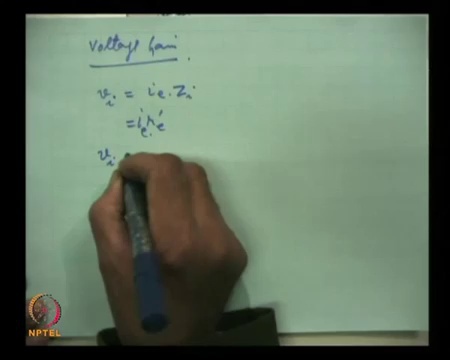 Voltage Gain.
v_i = i_e . Z_i
= i_e r'_e
v_i
NPTEL